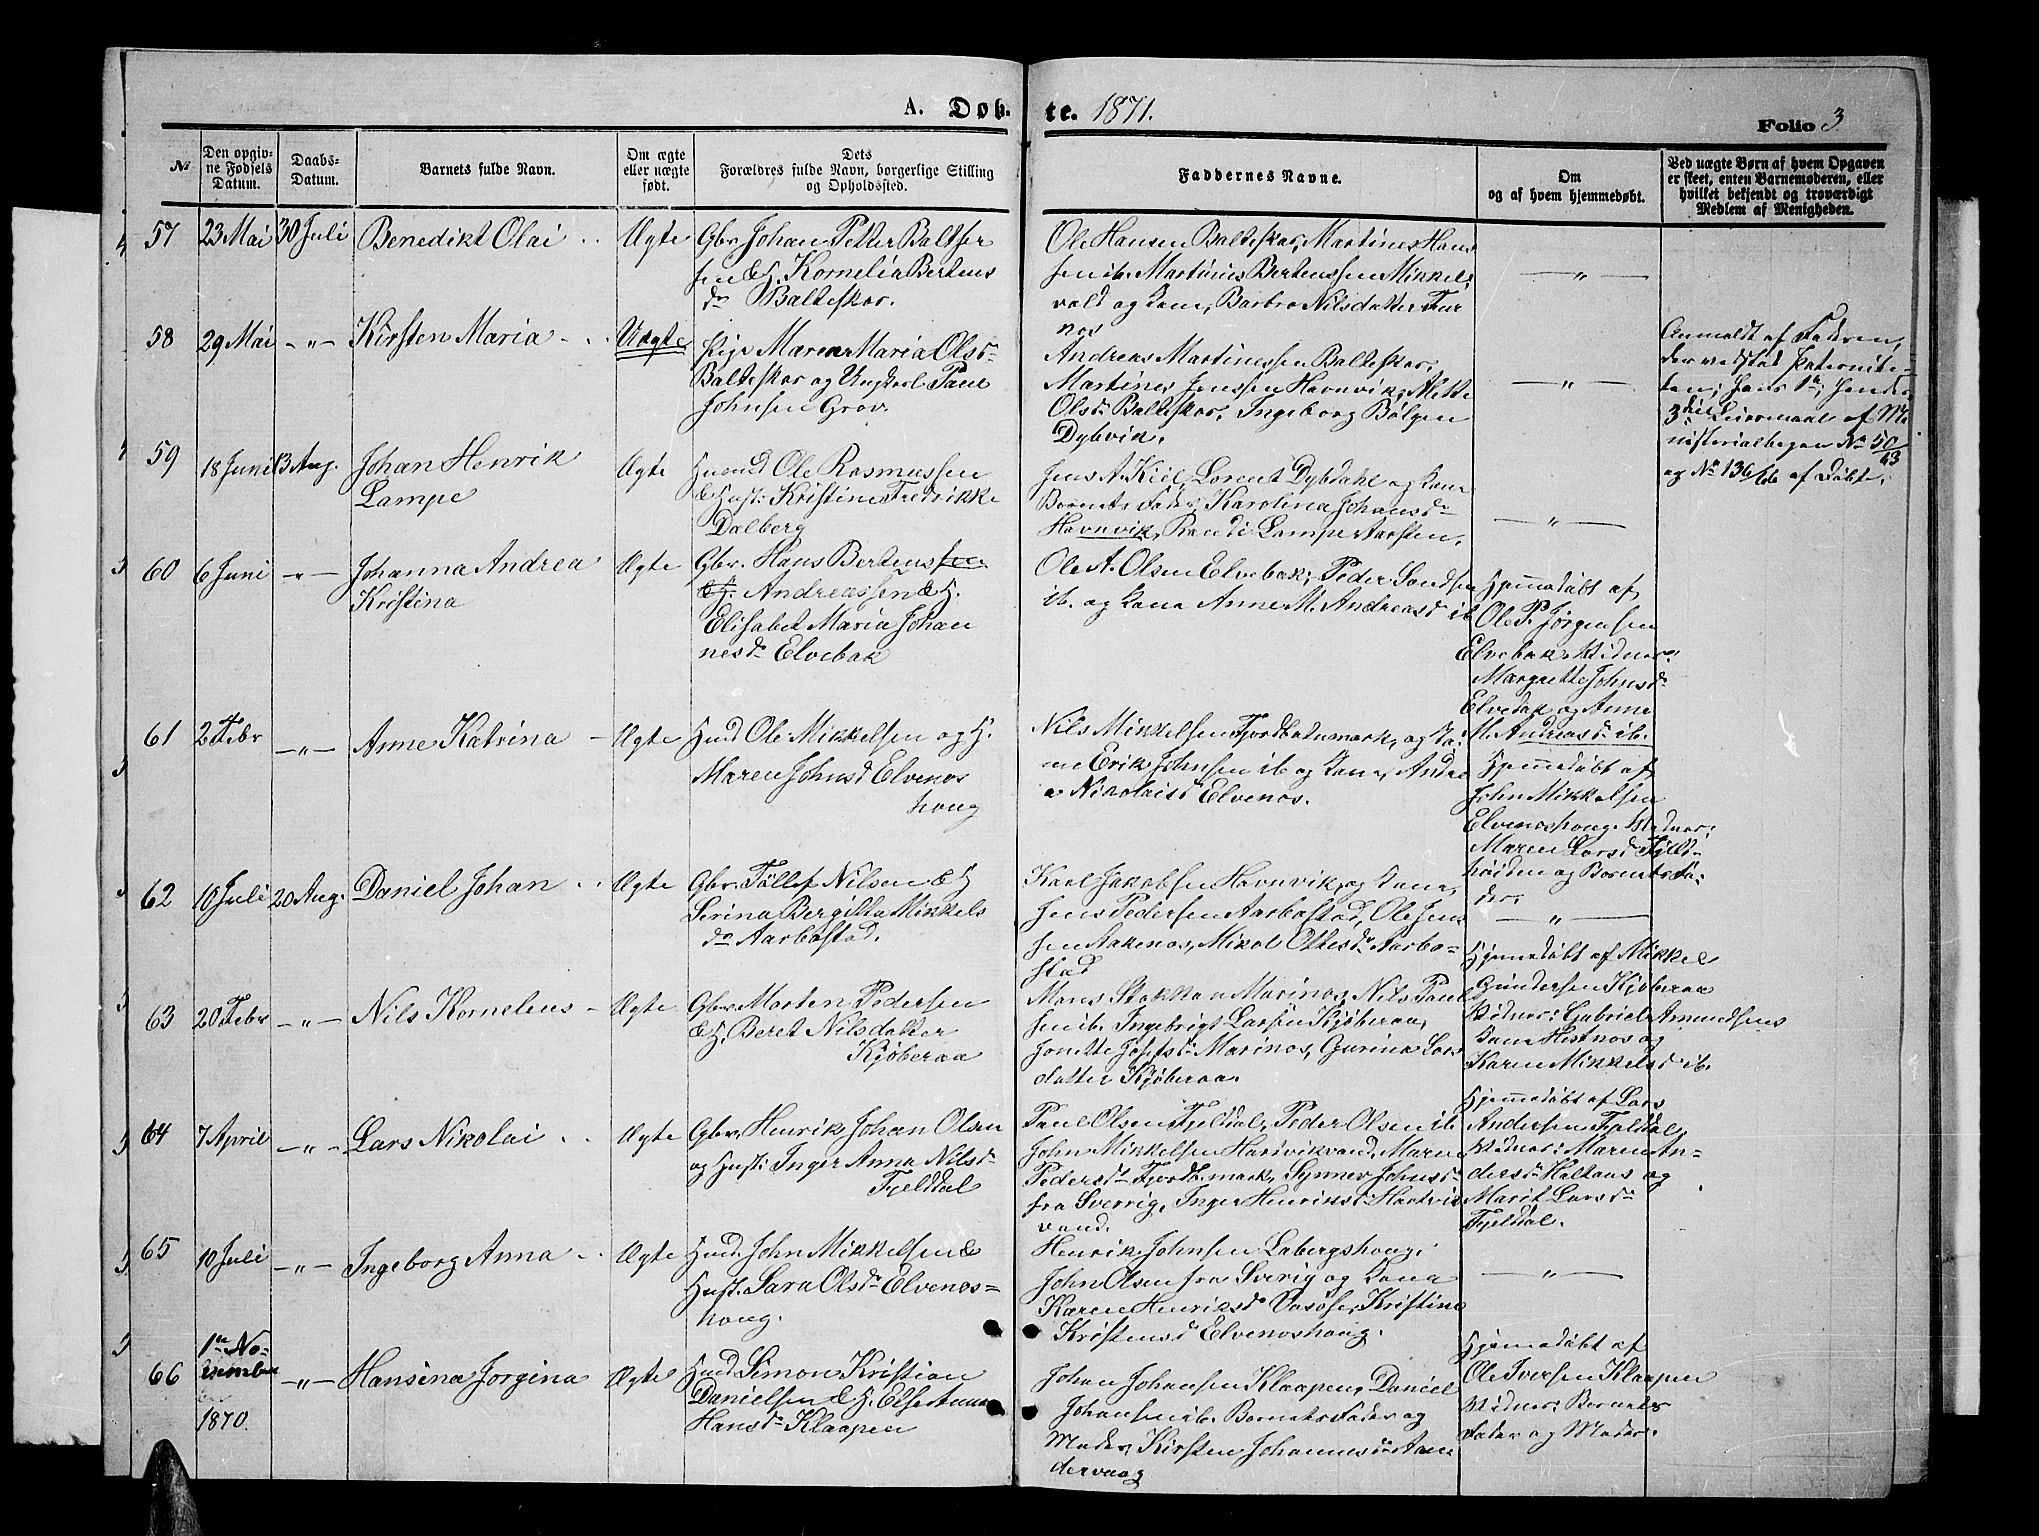 A. Døbte. 1871.
Folio 3
№
Den opgivne Fødsels Datum.
Daabs-Datum.
Barnets fulde Navn.
Om ægte eller uægte født.
Dets Forældres fulde Navn, borgerlige Stilling og Opholdssted.
Faddernes Navne.
Om og af hvem hjemmedøbt.
Ved uægte Børn af hvem Opgaven er skeet, enten Barnemoderen, eller hvilket bekjendt og troværdigt Medlem af Menigheden.
57 23 Mai 30 Juli Benedikt Olai Ægte
Gbr. Johan Petter Baltser
sen & H. Kornelia Bertens
dr Balteskar.
Ole Hansen Balteskar, Martines Han
sen ib. Martinus Bertenssen Mikkels
vold og Kone, Barbro Nilsdatter Fur
nes
— „ —
58 29 Mai — „ — Kirsten Maria Uægte
Pige Maren Maria Olsdr
Balteskar og Ungkarl Paul
Johnsen Grov.
Andreas Martinessen Balteskar,
Martines Jenssen Havnvik, Mette
Olsdr Balteskar, Ingeborg Bølgen
Dybvik.
— „ —
Anmeldt af Fadren,
der vedstod Paternite-
ten; hans 1te, hendes
3die Leiermaal af Mi
nisterialbogen No 50/63
og No 136/66 af Døbte.
59 18 Juni 13 Aug. Johan Henrik
Lampe
Ægte
Husmd Ole Rasmussen
& Hust: Kristine Fredrikke
Dalberg
Jens A. Kiil, Lorent Dybdahl og Kone
Barnets Fader, Karolina Johansdr
Havnvik, Randi Lampe Aarsten.
— „ —
60 6 Juni — „ — Johanna Andrea
Kristina
Ægte
Gbr. Hans Bertenssen
& H. Andreassen & H.
Elisabet Maria Johan
nesdr Elvebak
Ole A. Olsen Elvebak, Peder Sandsen
ib. og Kone Anne M. Andreasd ib
Hjemmedøbt af
Ole P. Jørgensen
Elvebak. Vidner:
Margrette Johnsdr
Elvebak og Anne
M. Andreasdr ib.
61 2 Febr — „ — Anne Katrina Ægte
Hmd Ole Mikkelsen og H.
Maren Johnsd Elvenes
houg
Nils Mikkelsen Fjordbotnmark, og Ko
ne Erik Johnsen ib og Kone, Andre
a Nikolaisd Elvenes.
Hjemmedøbt af
John Mikkelsen
Elveneshoug. Vidner:
Maren Larsd Fjeld-
høiden og Barnets Fa-
der.
62 10 Juli 20 Aug. Daniel Johan Ægte
Gbr. Tollef Nilsen & H
Serina Bergitta Mikkels
dr Aarbostad.
Karl Jakobsen Havnvik, og Kone,
Jens Pedersen Aarbostad, Ole Jens
sen Aakenes, Mikal Ottesdr Aarbo-
stad
— „ —
63 20 Febr — „ — Nils Kornelius Ægte
Gbr. Morten Pedersen
& H. Beret Nilsdatter
Kjøberaa
Mons Stokka Marines, Nils Paul
sen ib. Ingebrigt Larsen Kjøberaa,
Jonette Josefsdr Marines, Gurina Lars
datter Kjøberaa.
Hjemmedøbt af Mikkel
Gundersen Kjøberaa
Vidner: Gabriel Amundsens
Kone Hestnes og
Karen Mikkelsd ib.
64 7 April — „ — Lars Nikolai Ægte
Gbr. Henrik Johan Olsen
og Hust: Inger Anna Nilsdr
Fjelddal
Paul Olsen Fjeldal, Peder Olsen ib
John Mikkelsen Hartvikvand, Maren
Pedersdr Fjordb.mark, Synnev Johnsdr
fra Sverrig, Inger Henriksd Hartvik
vand.
Hjemmedøbt af Lars
Andersen Fjeldal
Vidner: Maren An-
dersdr Haltaas og
Marit Larsdr
Fjeldal.
65 10 Juli — „ — Ingeborg Anna Ægte
Hmd. John Mikkelsen &
Hust. Sara Olsdr Elvenes-
houg.
Henrik Johnsen Labergshoug,
John Olsen fra Sverig og Kone
Karen Henriksdr Vasøse, Kristine
Kristensd Elveneshoug.
— „ —
66 1ste No-
vember
1870.
— „ — Hansina Jorgina Ægte
Hmd Simon Kristian
Danielsen & H. Else Anna
Hansdr Klaapen
Johan Johansen Klaapen, Daniel
Johansen ib. Barnets Fader og
Moder, Kirsten Johannesdr Aan
dervaag
Hjemmedøbt af
Ole Iversen Klaapen
Vidner: Barnets
Fader og Moder.